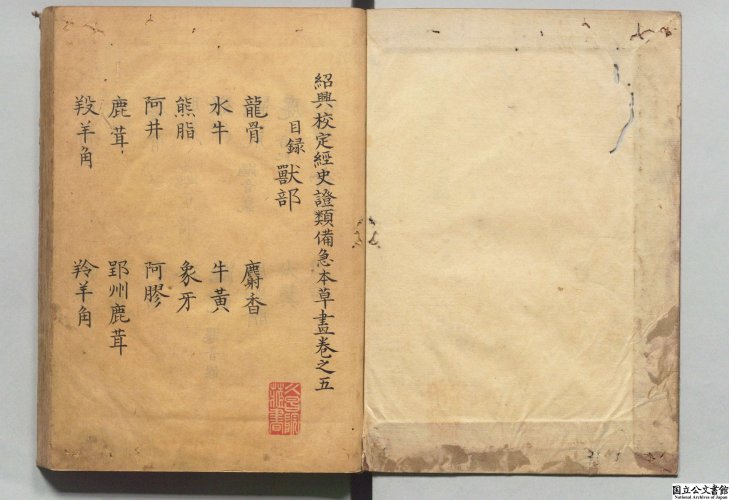 紹興校定經史證類備急本草畫卷之五
目録 獸部
龍骨 麝香
水牛 牛黃
熊脂 象牙
阿井 阿膠
鹿茸 郢州鹿茸
羖羊角 羚羊角
国立公文書館
National Archives of Japan